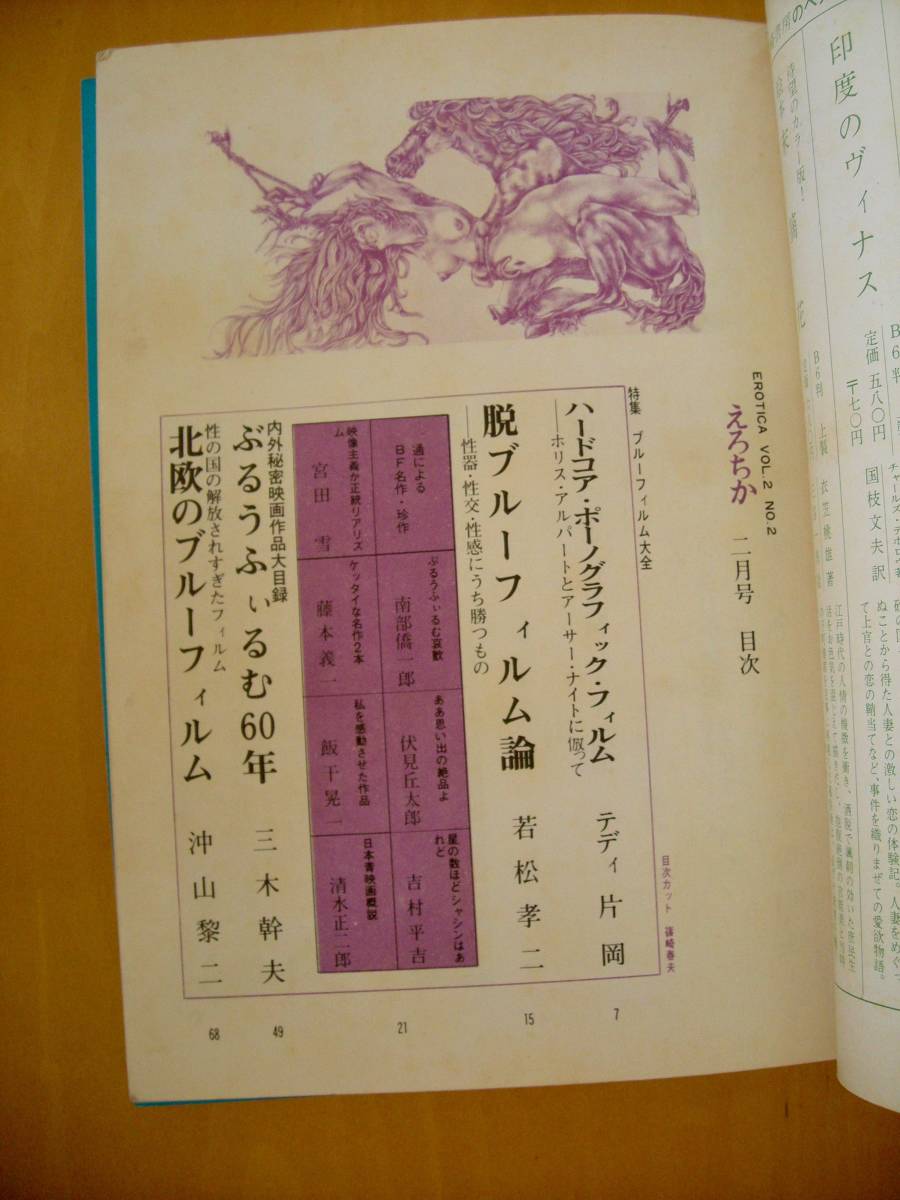 印度のヴィナス
B6判
定価 五八〇円
〒七〇円
国枝文夫 訳
ぬことから得た人妻との激しい恋の体験記。人妻をめぐっ
て上官との恋の鞘当てなど、事件を織りまぜての愛欲物語。
待望のカラー版!
B6判 上製
衣笠桃雄 著
江戸時代の人情の機微を衝き、洒脱で諷刺の効いた庶民生
EROTICA VOL.2 NO.2
えろちか 二月号 目次
目次カット 篠崎春夫
特集 ブルーフィルム大全
ハードコア・ポーノグラフィック・フィルム テディ片岡 7
──ホリス・アルパートとアーサー・ナイトに倣って
脱ブルーフィルム論 若松孝二 15
──性器・性交・性感にうち勝つもの
通による
BF名作・珍作 21
ぶるうふぃるむ哀歓
南部僑一郎
ああ思い出の絶品よ
伏見丘太郎
星の数ほどシャシンはあ
れど
吉村平吉
映像主義か正統リアリズ
ム
宮田雪
ケッタイな名作2本
藤本義一
私を感動させた作品
飯干晃一
日本青映画概説
清水正二郎
内外秘密映画作品大目録
ぶるうふぃるむ60年 三木幹夫 49
性の国の解放されすぎたフィルム
北欧のブルーフィルム 沖山黎二 68